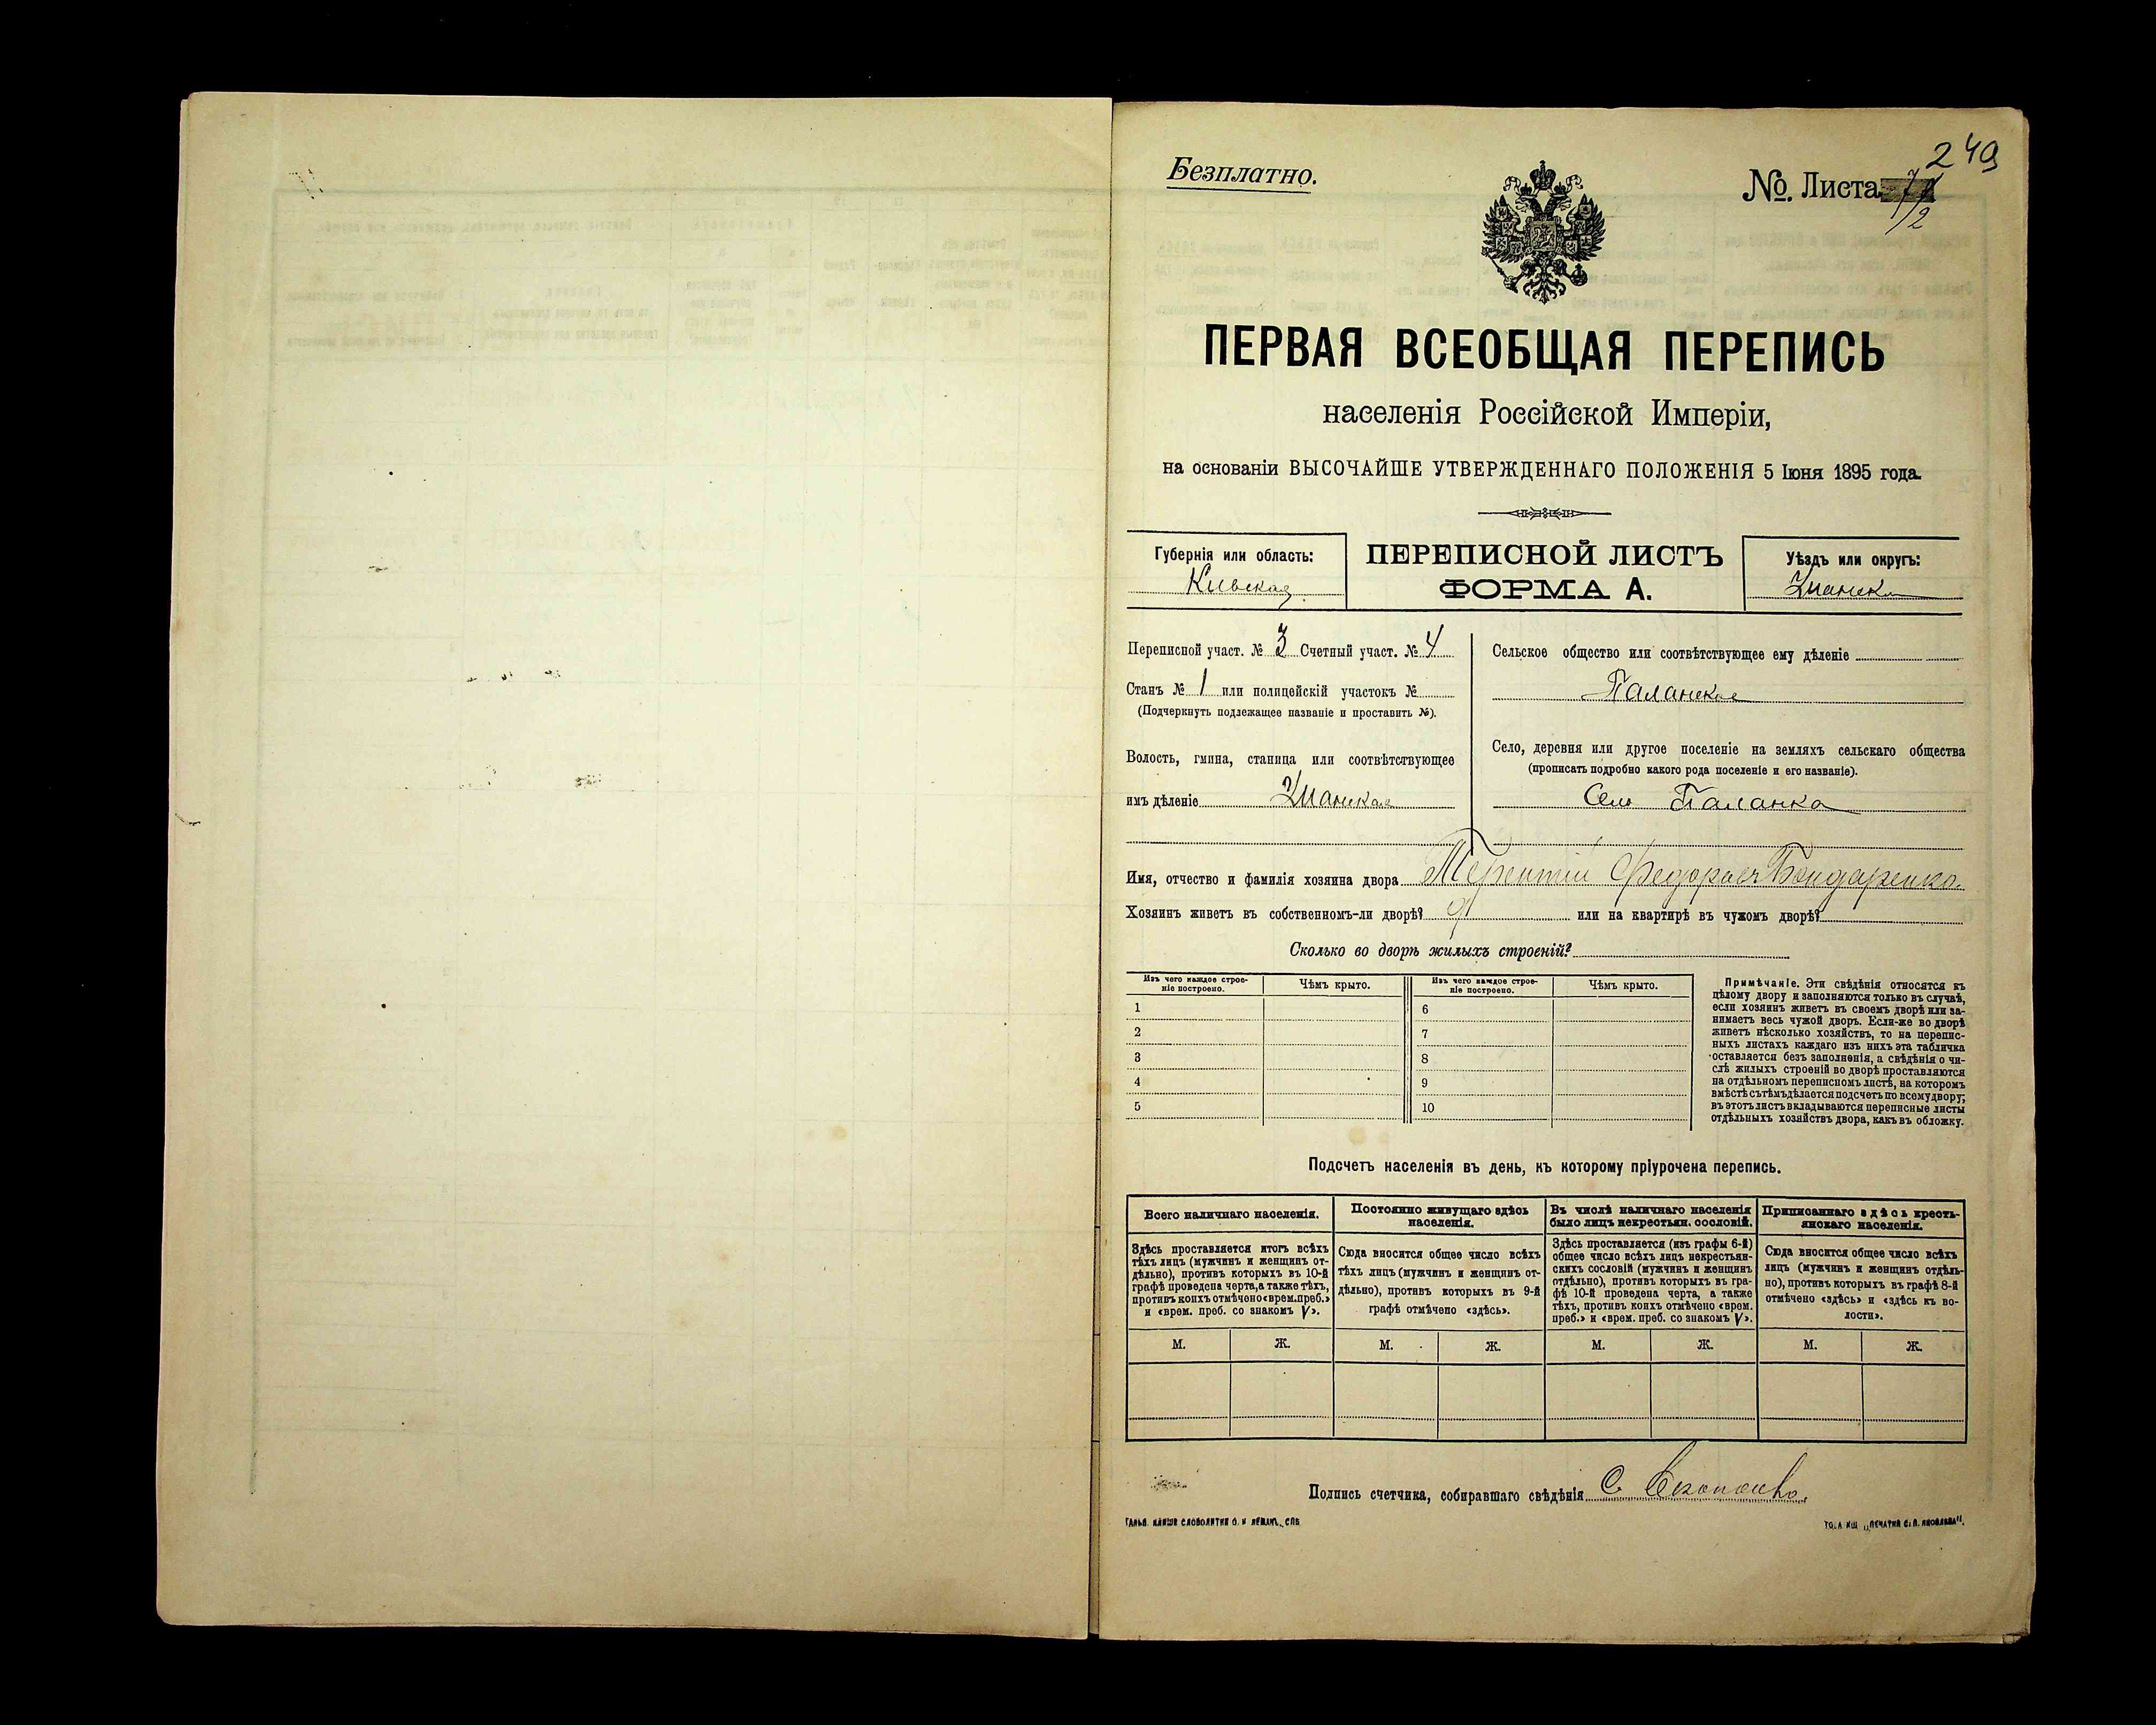 Безплатно.
249
№ Листа
1/2
ПЕРВАЯ ВСЕОБЩАЯ ПЕРЕПИСЬ
населенія Россійской Имперіи,
на основаніи ВЫСОЧАЙШЕ УТВЕРЖДЕННАГО ПОЛОЖЕНІЯ 5 Іюня 1895 года.
Губернія или область:
Кивская
ПЕРЕПИСНОЙ ЛИСТЪ
ФОРМА А.
Уѣздъ или округъ:
Уманск
Переписной участ. № 3 Счетный участ. № 4
Станъ № 1 или полицейскій участокъ №
(Подчеркнуть подлежащее названіе и проставить №).
Волость, гмина, станица или соотвѣтствующее
имъ дѣленіе Уманская
Сельское общество или соотвѣтствующее ему дѣленіе
Паланское
Село, деревня или другое поселеніе на земляхъ сельскаго общества
(прописать подробно какого рода поселеніе и его названіе).
Село Паланка
Имя, отчество и фамилія хозяина двора Терентій Федоровъ Бондаренко.
Хозяинъ живетъ въ собственномъ-ли дворѣ? или на квартирѣ въ чужомъ дворѣ?
Сколько во дворѣ жилыхъ строеній?
Изъ чего каждое строе-
ніе построено.
Чѣмъ крыто.
Изъ чего каждое строе-
ніе построено.
Чѣмъ крыто.
1
2
3
4
5
6
7
8
9
10
Примѣчаніе. Эти свѣдѣнія относятся къ
цѣлому двору и заполняются только въ случаѣ,
если хозяинъ живетъ въ своемъ дворѣ или за-
нимаетъ весь чужой дворъ. Если-же во дворѣ
живетъ нѣсколько хозяйствъ, то на перепис-
ныхъ листахъ каждаго изъ нихъ эта табличка
оставляется безъ заполненія, а свѣдѣнія о чи-
слѣ жилыхъ строеній во дворѣ проставляются
на отдѣльномъ переписномъ листѣ, на которомъ
вмѣстѣ съ тѣмъ дѣлается подсчетъ по всему двору;
въ этотъ листъ вкладываются переписные листы
отдѣльныхъ хозяйствъ двора, какъ въ обложку.
Подсчетъ населенія въ день, къ которому пріурочена перепись.
Всего наличнаго населенія.
Здѣсь проставляется итогъ всѣхъ
тѣхъ лицъ (мужчинъ и женщинъ от-
дѣльно), противъ которыхъ въ 10-й
графѣ проведена черта, а также тѣхъ,
противъ коихъ отмѣчено «врем. преб.»
и «врем. преб. со знакомъ V».
Постоянно живущаго здѣсь
населенія.
Сюда вносится общее число всѣхъ
тѣхъ лицъ (мужчинъ и женщинъ от-
дѣльно), противъ которыхъ въ 9-й
графѣ отмѣчено «здѣсь».
Въ числѣ наличнаго населенія
было лицъ некрестьян. сословій.
Здѣсь проставляется (изъ графы 6-й)
общее число всѣхъ лицъ некрестьян-
скихъ сословій (мужчинъ и женщинъ
отдѣльно), противъ которыхъ въ гра-
фѣ 10-й проведена черта, а также
тѣхъ, противъ коихъ отмѣчено «врем.
преб.» и «врем. преб. со знакомъ V».
Приписаннаго здѣсь кресть-
янскаго населенія.
Сюда вносится общее число всѣхъ
лицъ (мужчинъ и женщинъ отдѣль-
но), противъ которыхъ въ графѣ 8-й
отмѣчено «здѣсь» и «здѣсь къ во-
лости».
М. Ж. М. Ж. М. Ж. М. Ж.
Подпись счетчика, собиравшаго свѣдѣнія С.